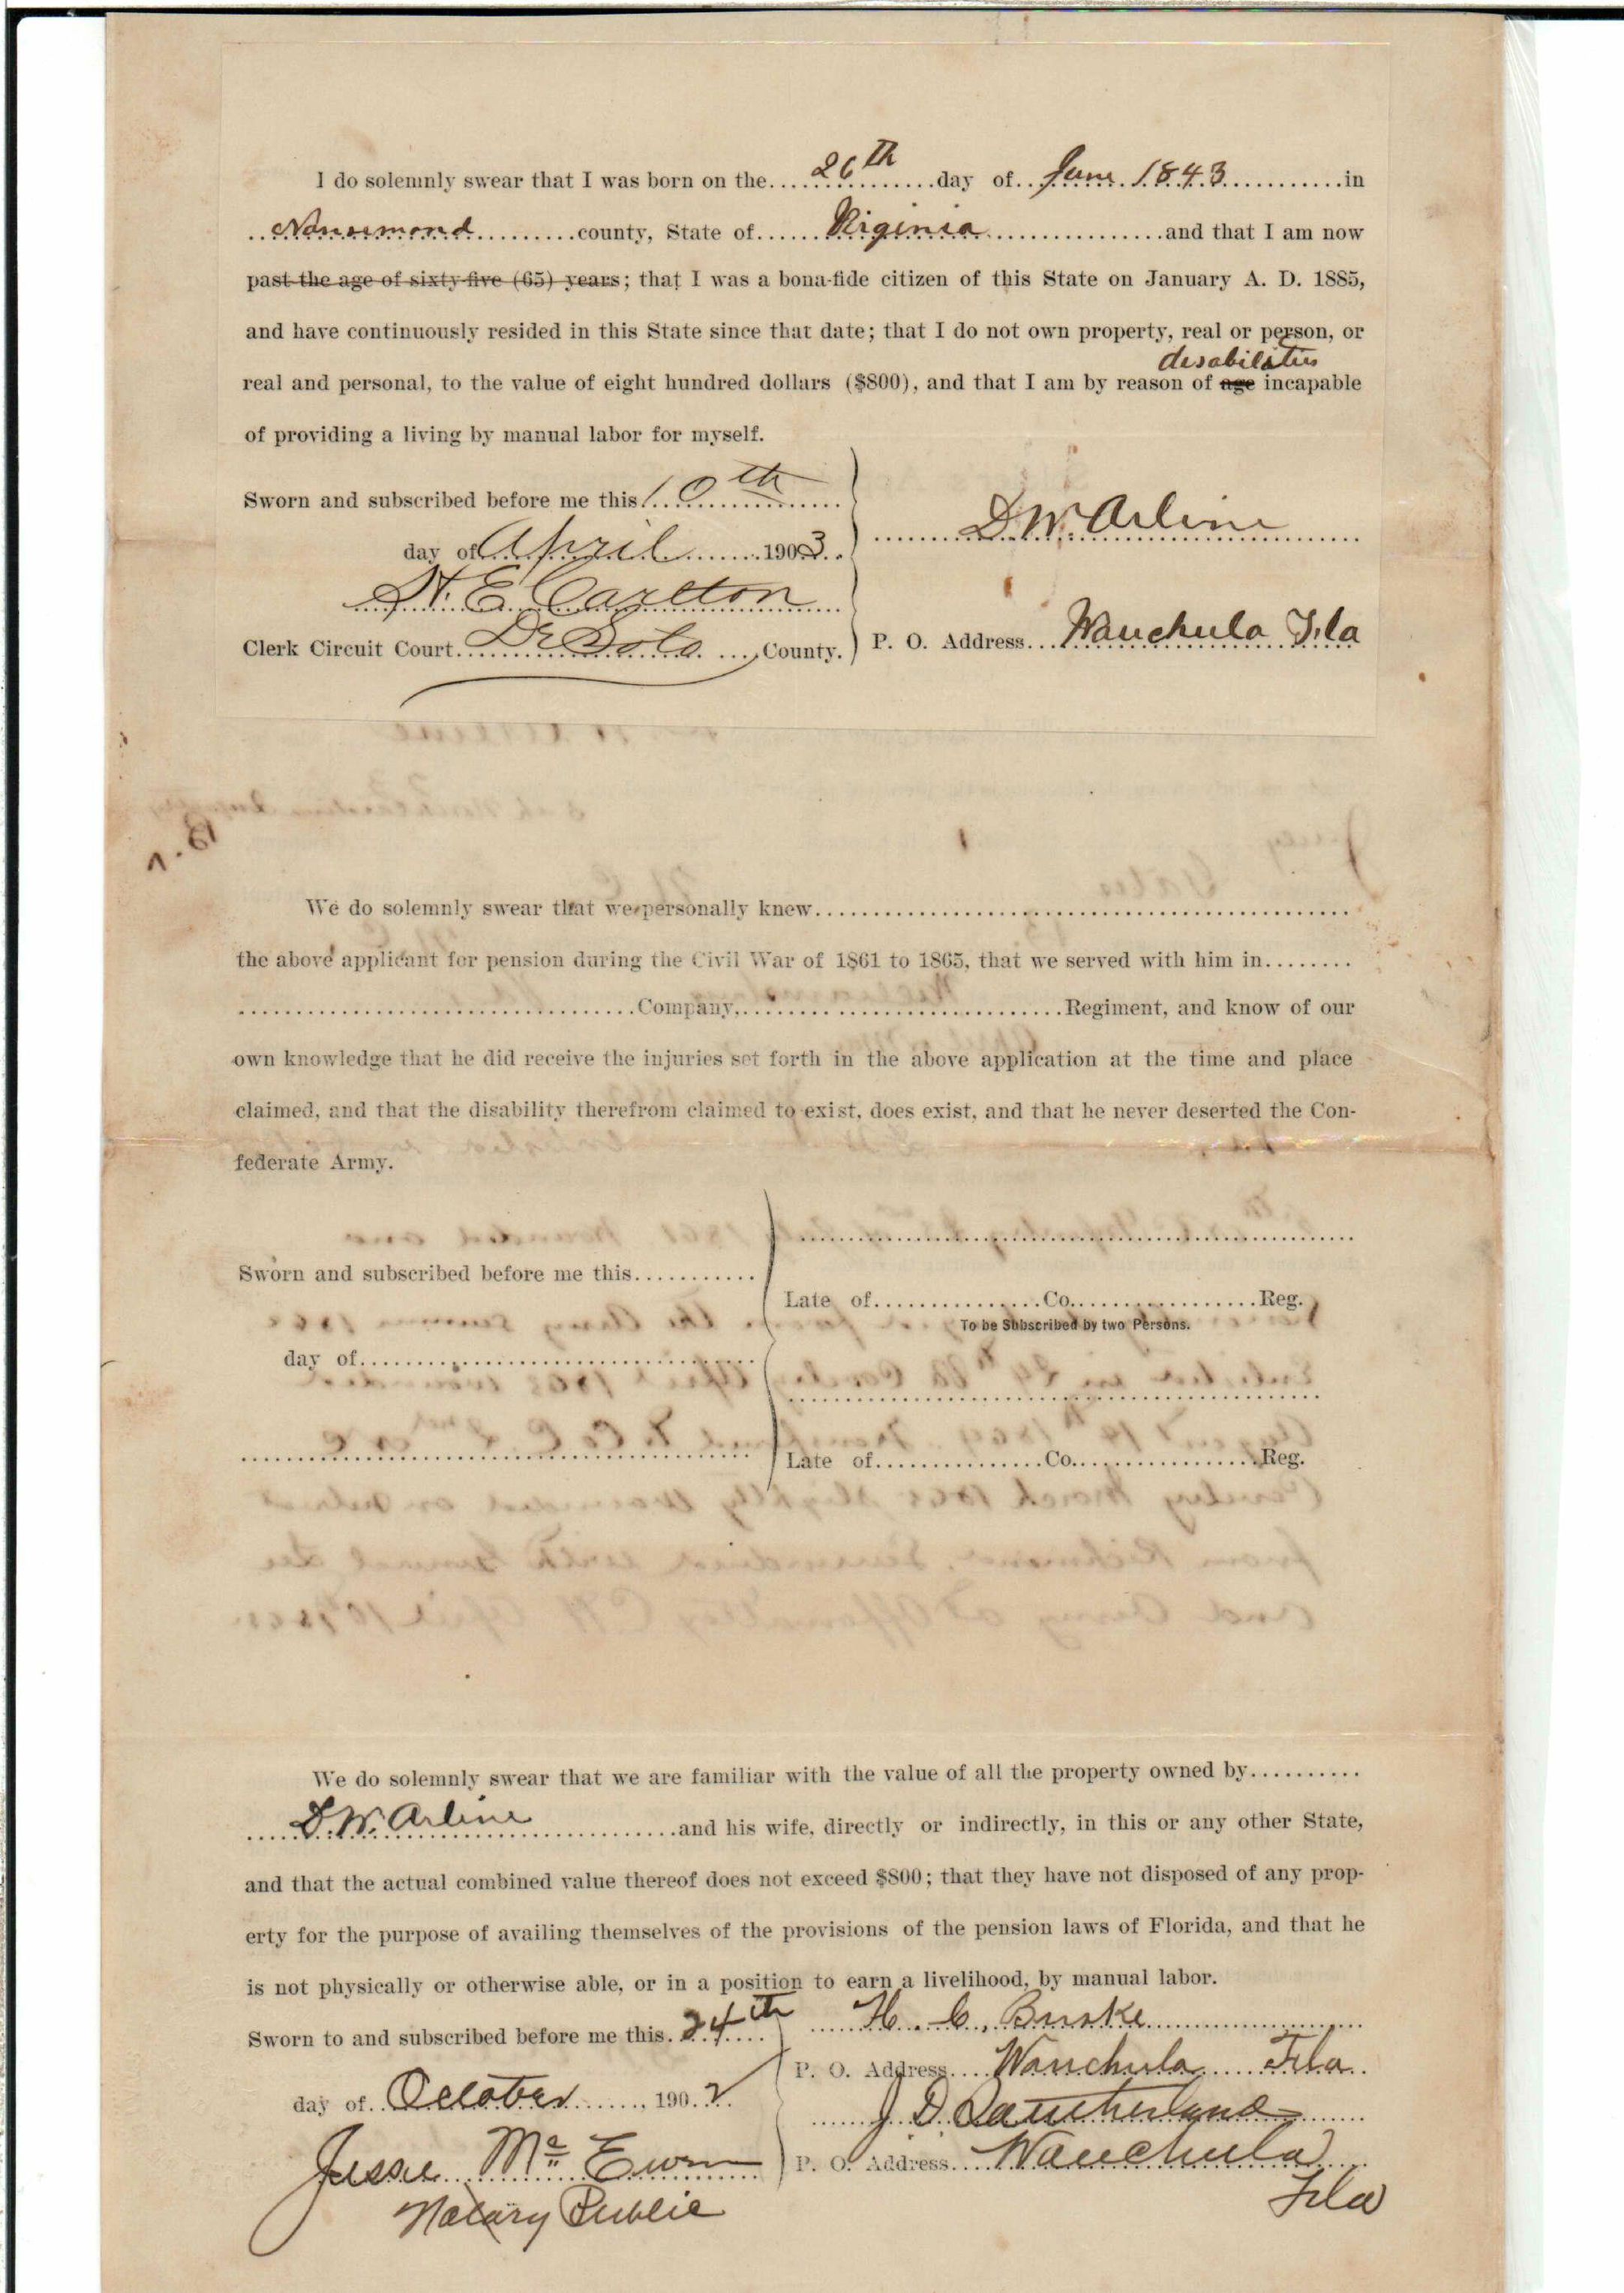 I do solemnly swear that I was born on the 26th day of June 1843 in
Nansemond county, State of Virginia and that I am now
past the age of sixty-five (65) years; that I was a bona-fide citizen of this State on January A. D. 1885,
and have continuously resided in this State since that date; that I do not own property, real or person, or
desabilities
real and personal, to the value of eight hundred dollars ($800), and that I am by reason of age incapable
of providing a living by manual labor for myself.
Sworn and subscribed before me this 10th
D W. Arline
day of April 1903
Carlton
Clerk Circuit Court De Soto County.
P. O. Address Wauchula Fla
We do solemnly swear that we personally knew
the above applicant for pension during the Civil War of 1861 to 1865, that we served with him in
Company, Regiment, and know of our
own knowledge that he did receive the injuries set forth in the above application at the time and place
claimed, and that the disability therefrom claimed to exist, does exist, and that he never deserted the Con-
federate Army.
Sworn and subscribed before me this
Late of Co. Reg.
To be Subscribed by two Persons.
day of
Late of Co. Reg.
We do solemnly swear that we are familiar with the value of all the property owned by
D. W. Arline and his wife, directly or indirectly, in this or any other State,
and that the actual combined value thereof does not exceed $800; that they have not disposed of any prop-
erty for the purpose of availing themselves of the provisions of the pension laws of Florida, and that he
is not physically or otherwise able, or in a position to earn a livelihood, by manual labor.
Sworn to and subscribed before me this 24th
H. C.
P. O. Address Wauchula Fla
day of October, 1902
J. D.
Jesse Mc Ewen
P. O. Address Wauchula
Fla
Notary Public